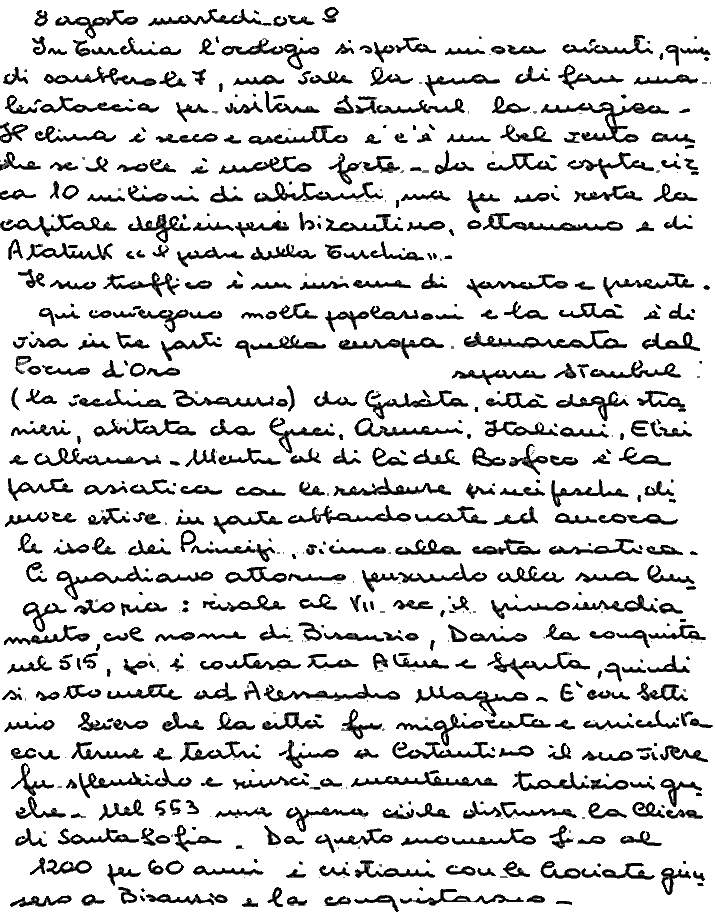 8 agosto martedì ore 8
In Turchia l'orologio si sposta un'ora avanti, quin
di sarebbero le 7, ma vale la pena di fare una
levataccia per visitare Istanbul la magica -
Il clima è secco e asciutto e c'è un bel vento an
che se il sole è molto forte - La città ospita cir
ca 10 milioni di abitanti, ma per noi resta la
capitale degli imperi bizantino, ottomano e di
Ataturk "il padre della Turchia". -
Il suo traffico è un insieme di passato e presente.
qui convergono molte popolazioni e la città è di
visa in tre parti quella europea demarcata dal
Corno d'Oro separa Stanbul
(la vecchia Bisanzio) da Galàta, città degli stra
nieri, abitata da Greci, Armeni, Italiani, Ebrei
e albanesi - Mentre al di là del Bosforo è la
parte asiatica con le residenze principesche, di
more estive in parte abbandonate ed ancora
le isole dei Principi, vicino alla costa asiatica -
Ci guardiamo attorno pensando alla sua lun
ga storia: risale al VII sec, il primo insedia
mento, col nome di Bisanzio, Dario la conquista
nel 515, poi è contesa tra Atene e Sparta, quindi
si sottomette ad Alessandro Magno - E' con Setti
mio Severo che la città fu migliorata e arricchita
con terme e teatri fino a Costantino il suo vivere
fu splendido e riuscì a mantenere tradizioni gre
che - Nel 553 una guerra civile distrusse la Chiesa
di Santa Sofia - Da questo momento fino al
1200 per 60 anni i cristiani con le Crociate giun
sero a Bisanzio e la conquistarono -